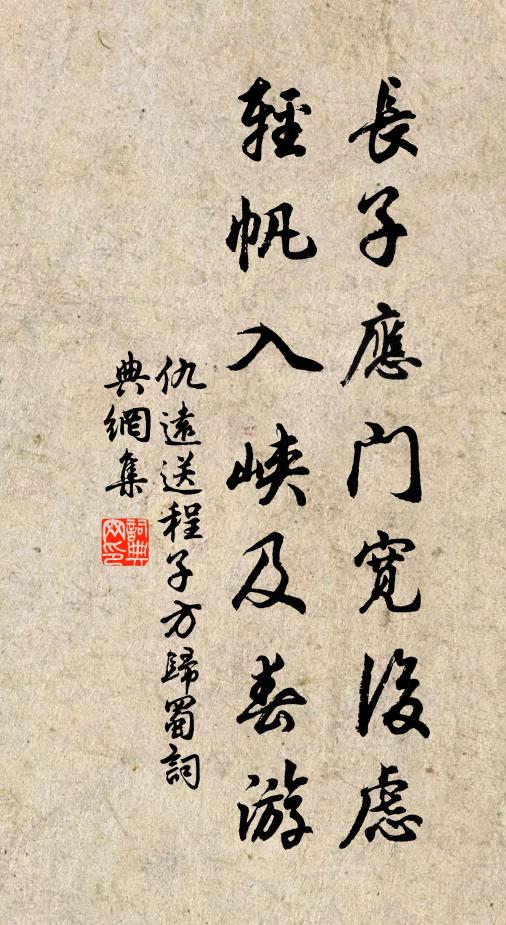 長子應門寛後慮
輕帆入峽及春游
仇遠送程子方歸蜀詞
典網集
詞典
网印